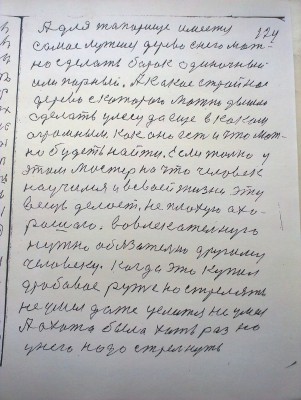 124
А для тапарище имеету
самое лучшеи дерево снего мож-
но сделать барок одиночный
или парный. А какое стройное
дерево с катарого можно
сделать улису да еще в каком
аграмным. как оно ест и что мож-
но будеть найти. Если только у
этим мостер на что человек
научился и в своей жизни эту
вещь делает. не плохую а хо-
рошаго.
нужно обязательно другому
человеку. когда это купил
дробавае ружо но стрелять
не умел даже целится не умел
А охота была хоть раз но
у него надо стрелнуть